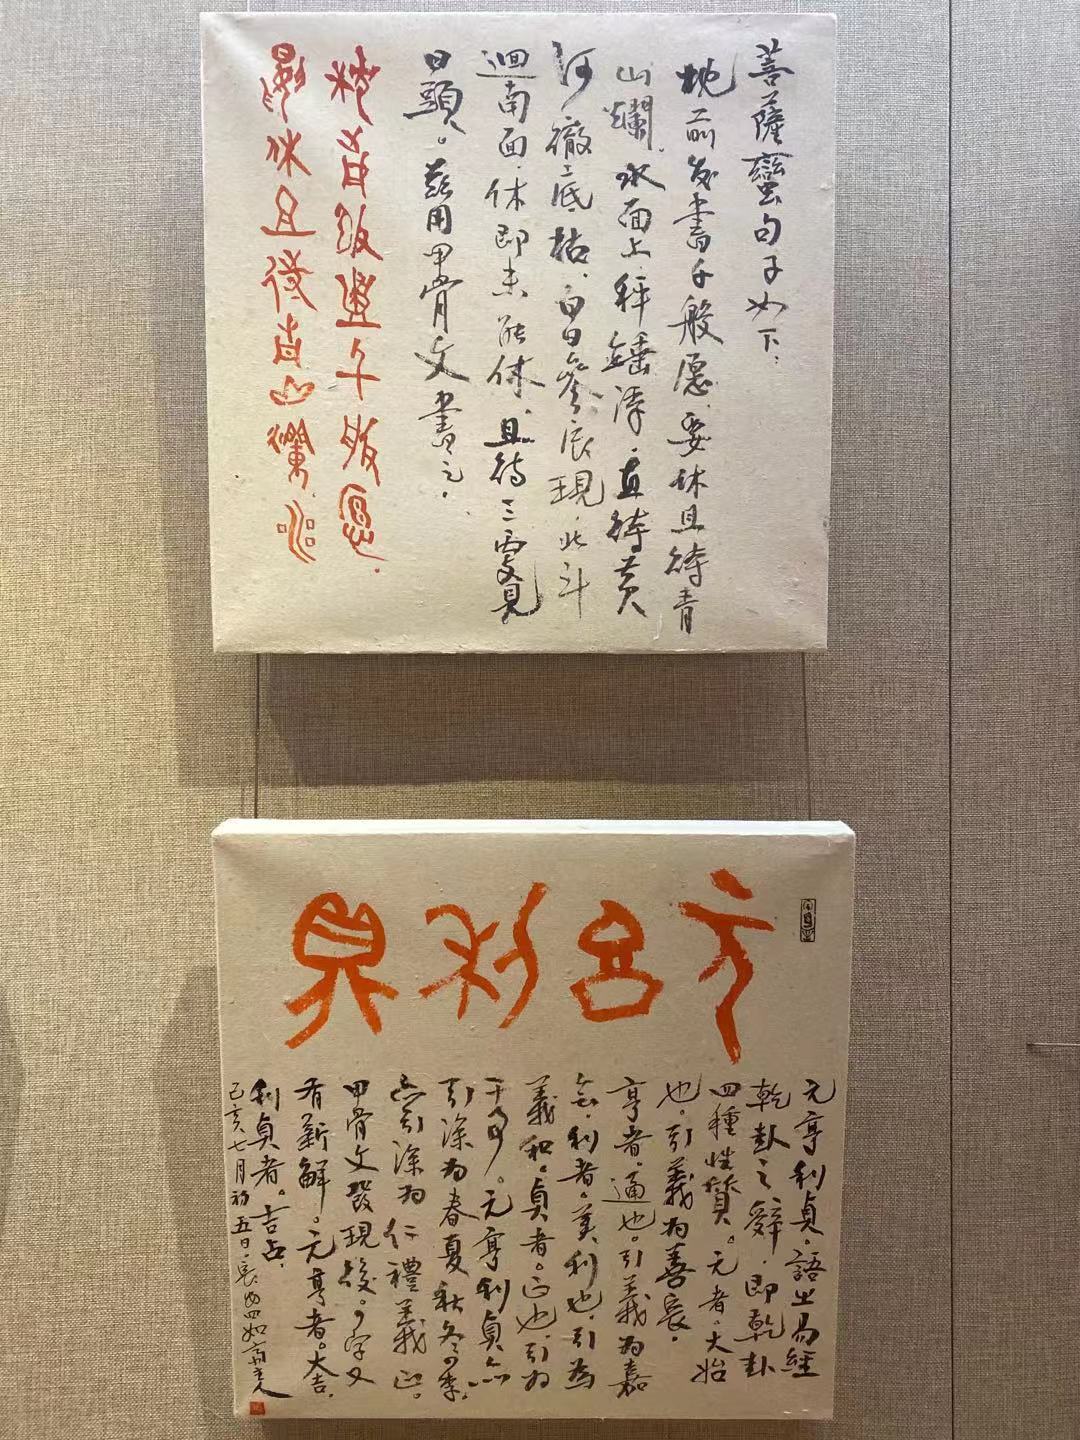 菩薩蠻句子如下：
枕前发盡千般愿，要休且待青
山爛，水面上秤錘浮，直待黃
河徹底枯，白日參辰現，北斗
迴南面，休即未能休，且待三更見
日頭。茲用甲骨文書之。
枕前發盡千般愿。
要休且待青山爛水
元亨利貞
元亨利貞。語出易經
乾卦之辭，即乾卦
四種性質。元者。大始
也。引義為善長。
亨者。通也。引義為嘉
會。利者。美利也，引為
義和。貞者。正也，引為
干事。元亨利貞亦
引深為春夏秋冬四季。
亦引深為仁禮義正。
甲骨文發現後。四字又
有新解。元亨者。大吉，
利貞者。吉占，
己亥七月初五日四如齋主人